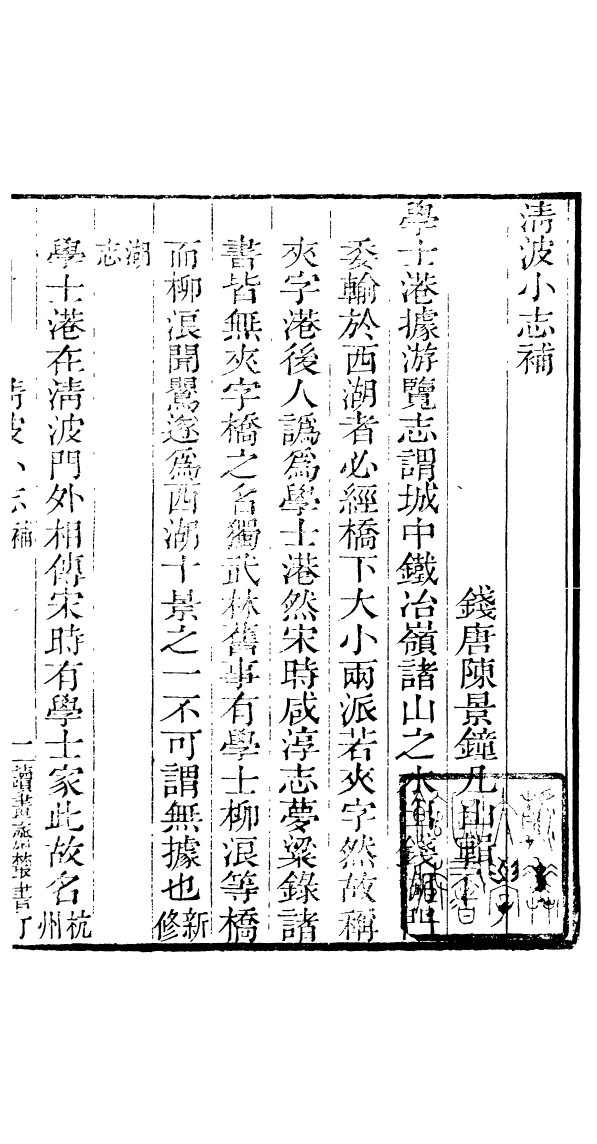 淸波小志補
錢唐陳景鐘几山輯
學士港據游覽志謂城中鐵冶嶺諸山之水
委輸於西湖者必經橋下大小兩派若夾字然故稱
夾字港後人譌爲學士港然宋時咸淳志夢粱錄諸
書皆無夾字橋之名獨武林舊事有學士柳浪等橋
而柳浪聞鶯遂爲西湖十景之一不可謂無據也新修
湖志
學士港在淸波門外相傳宋時有學士家此故名杭州
淸波小志補 二 讀畫齋叢書 丁